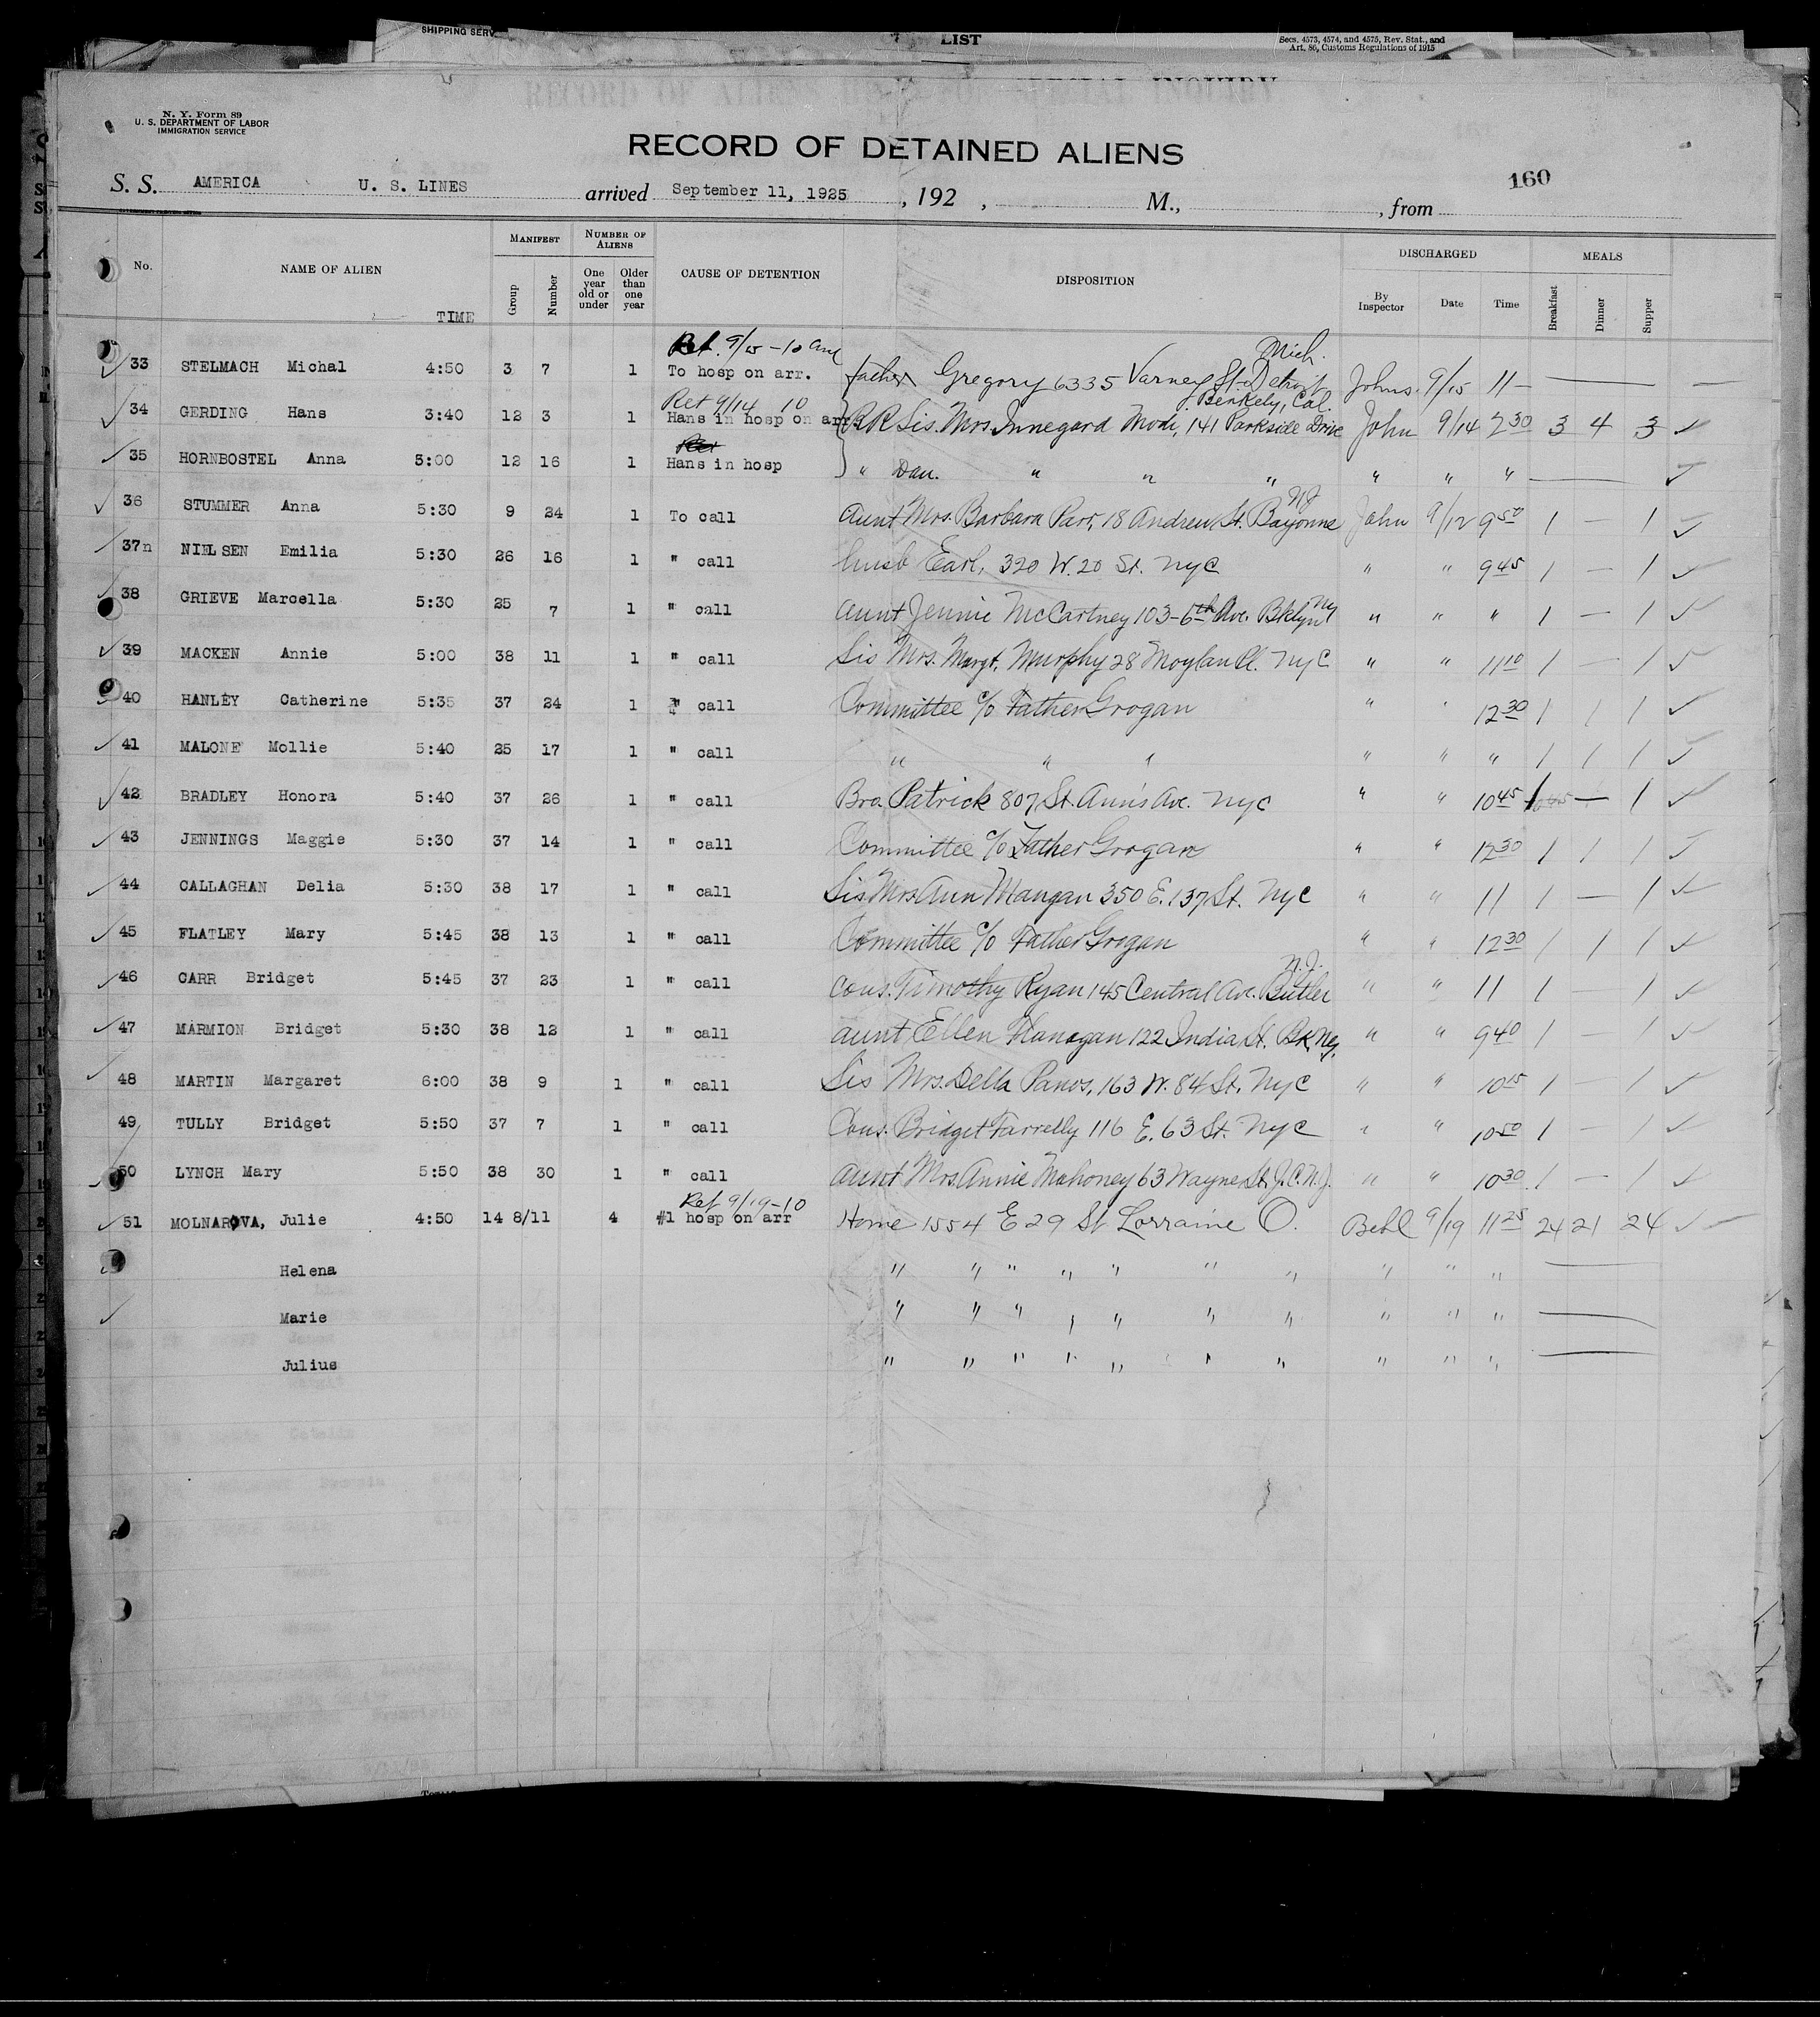 SHIPPING SERV
LIST
Secs. 4573, 4574, and 4575, Rev. Stat., and
Art. 86, Customs Regulations of 1915
RECORD OF ALIENS HELD FOR SPECIAL INQUIRY
N. Y. Form 89
U. S. DEPARTMENT OF LABOR
IMMIGRATION SERVICE
RECORD OF DETAINED ALIENS
160
S. S. AMERICA U. S. LINES arrived September 11, 1925, 192 , M., , from
No. NAME OF ALIEN TIME MANIFEST Group Number NUMBER OF ALIENS One year old or under Older than one year CAUSE OF DETENTION DISPOSITION DISCHARGED By Inspector Date Time MEALS Breakfast Dinner Supper
Ret. 9/15 - 10 am Mich.
33 STELMACH Michal 4:50 3 7 1 To hosp on arr. father Gregory 6335 Varney St. Detroit Johns. 9/15 11 —
Ret 9/14 10 Berkely, Cal.
34 GERDING Hans 3:40 12 3 1 Hans in hosp on arr RR Sis. Mrs. Innegard Modi, 141 Parkside Drive John 9/14 2 30 3 4 3 ✓
35 HORNBOSTEL Anna 5:00 12 16 1 Hans in hosp " Dau. " " " " " " — ✓
NJ
36 STUMMER Anna 5:30 9 24 1 To call aunt Mrs. Barbara Parr, 18 Andrew St. Bayonne John 9/12 9 50 1 — 1 ✓
37n NIELSEN Emilia 5:30 26 16 1 " call husb Earl, 320 W. 20 St. NYC " " 9 45 1 — 1 ✓
38 GRIEVE Marcella 5:30 25 7 1 " call aunt Jennie McCartney 103-6th Ave. Bklyn NY " " " 1 — 1 ✓
39 MACKEN Annie 5:00 38 11 1 " call Sis Mrs. Margt. Murphy 28 Moylan Pl. NYC " " 11 10 1 — 1 ✓
40 HANLEY Catherine 5:35 37 24 1 " call Committee c/o Father Grogan " " 12 30 1 1 1 ✓
41 MALONE Mollie 5:40 25 17 1 " call " " " " " " 1 1 1 ✓
42 BRADLEY Honora 5:40 37 26 1 " call Bro. Patrick 807 St. Ann's Av. NYC " " 10 45 1 — 1 ✓
43 JENNINGS Maggie 5:30 37 14 1 " call Committee c/o Father Grogan " " 12 30 1 1 1 ✓
44 CALLAGHAN Delia 5:30 38 17 1 " call Sis Mrs Ann Mangan 350 E. 137 St. NYC " " 11 1 — 1 ✓
45 FLATLEY Mary 5:45 38 13 1 " call Committee c/o Father Grogan " " 12 30 1 1 1 ✓
N.J.
46 CARR Bridget 5:45 37 23 1 " call cous. Timothy Ryan 145 Central Av. Butler " " 11 1 — 1 ✓
47 MARMION Bridget 5:30 38 12 1 " call aunt Ellen Flanagan 122 India St. Bk. NY. " " 9 40 1 — 1 ✓
48 MARTIN Margaret 6:00 38 9 1 " call Sis Mrs. Della Panos, 163 W. 84 St. NYC " " 10 15 1 — 1 ✓
49 TULLY Bridget 5:50 37 7 1 " call Cous. Bridget Farrelly 116 E. 63 St. NYC " " 10 50 1 — 1 ✓
50 LYNCH Mary 5:50 38 30 1 " call aunt Mrs. Annie Mahoney 63 Wayne St. J.C. N.J. " " 10 30 1 — 1 ✓
Ret 9/19-10
51 MOLNAROVA, Julie 4:50 14 8/11 4 #1 hosp on arr Home 1554 E 29 St Lorraine O. Behl 9/19 11 25 24 21 24 ✓
Helena " " " " " " " " " " —
Marie " " " " " " " " " " —
Julius " " " " " " " " " " —